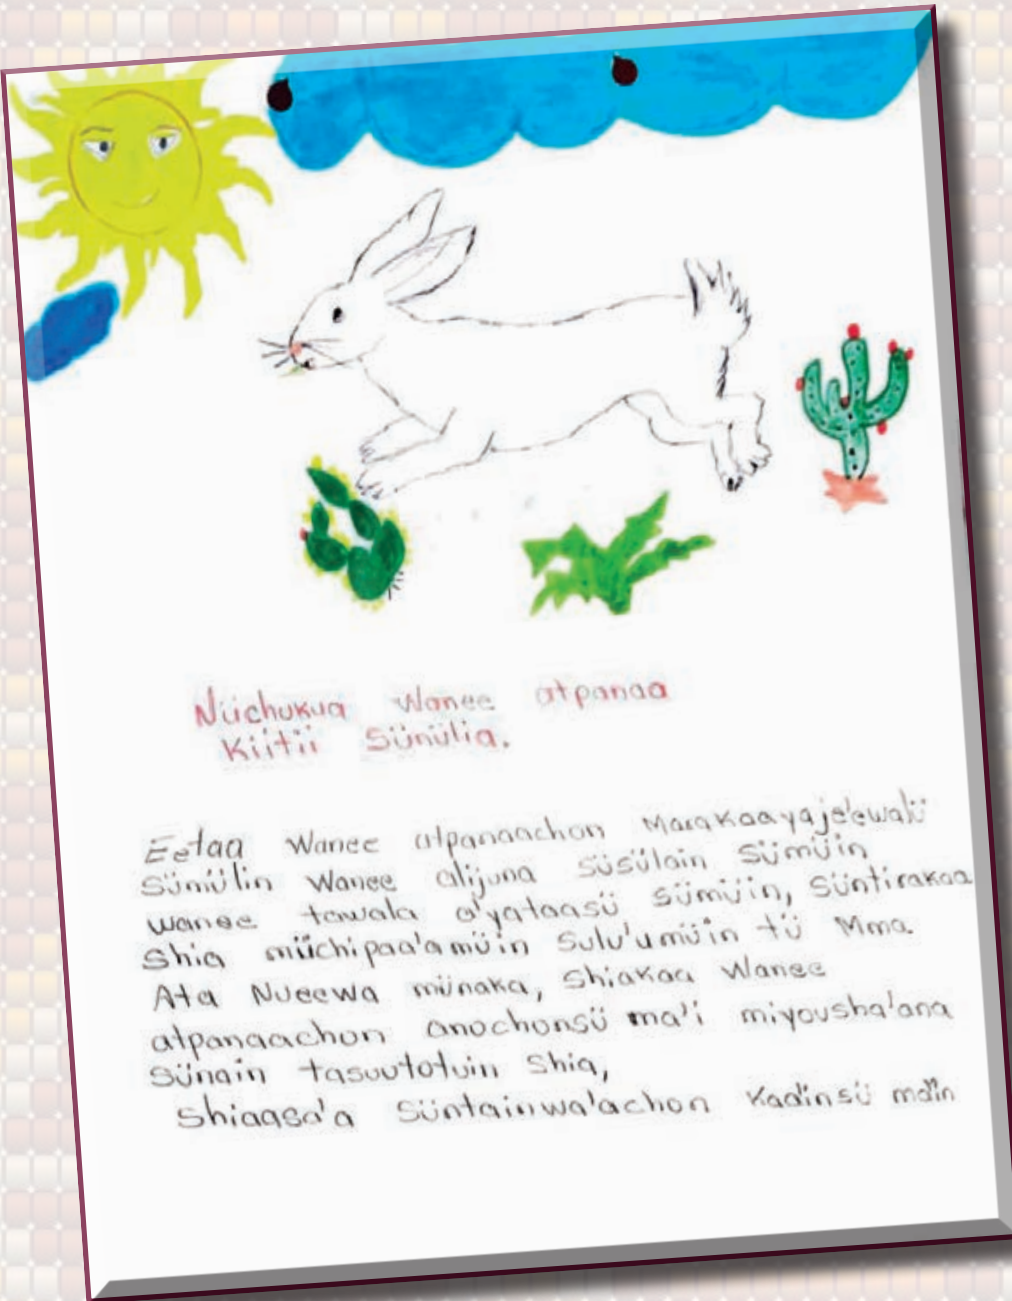 Nüchukua Wanee atpanaa
Kiitii Sünülia.
Eetaa Wanee atpanaachon Marakaayaje'ewalü
Sümülin Wanee alijuna Süsülain Sümüin
wanee tawala a'yataasü sümüin, Süntirakaa
Shia müchipaa'amüin Sulu'umüin tü Mma.
Ata Nueewa münaka, Shiakaa Wanee
atpanaachon anochonsü ma'i miyousha'ana
Sünain tasuutotuin Shia,
Shiaasa'a Süntainwa'achon Kadinsü mdin